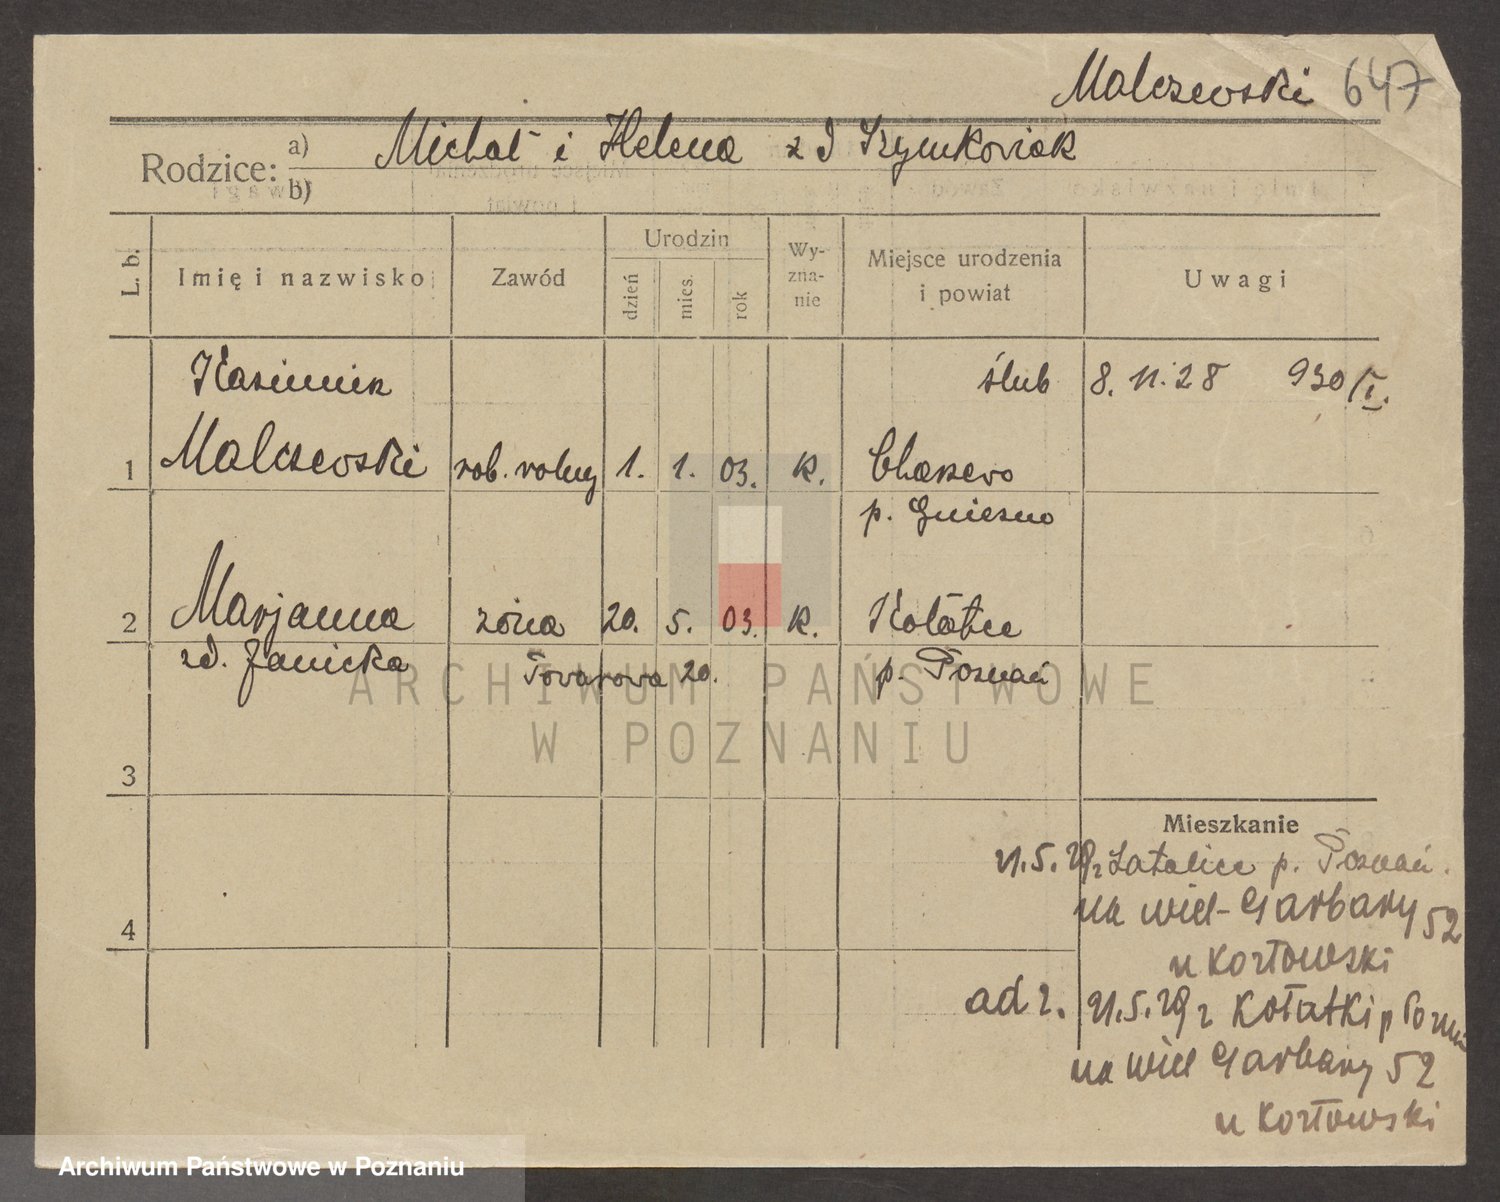 Malczewski 647
Rodzice: a) Michał i Helena z d Szymkowiak
b)
L. b. Imię i nazwisko Zawód Urodzin dzień mies. rok Wy-zna-nie Miejsce urodzenia i powiat Uwagi
Kazimierz ślub 8. 11. 28 930/I.
1 Malczewski rob. rolny 1. 1. 03. k.
p. Gniezno
2 Marjanna żona 20. 5. 03. k.
zd. Janicka Towarowa 20. p. Poznań
3
Mieszkanie
21.5.29 z Latalice p. Poznań.
na wiel-Garbary 52
4
u Kozłowski
ad 2. 21.5.29 z Kołatki p Poznań
na wiel Garbary 52
u Kozłowski
ARCHIWUM PAŃSTWOWE
W POZNANIU
Archiwum Państwowe w Poznaniu